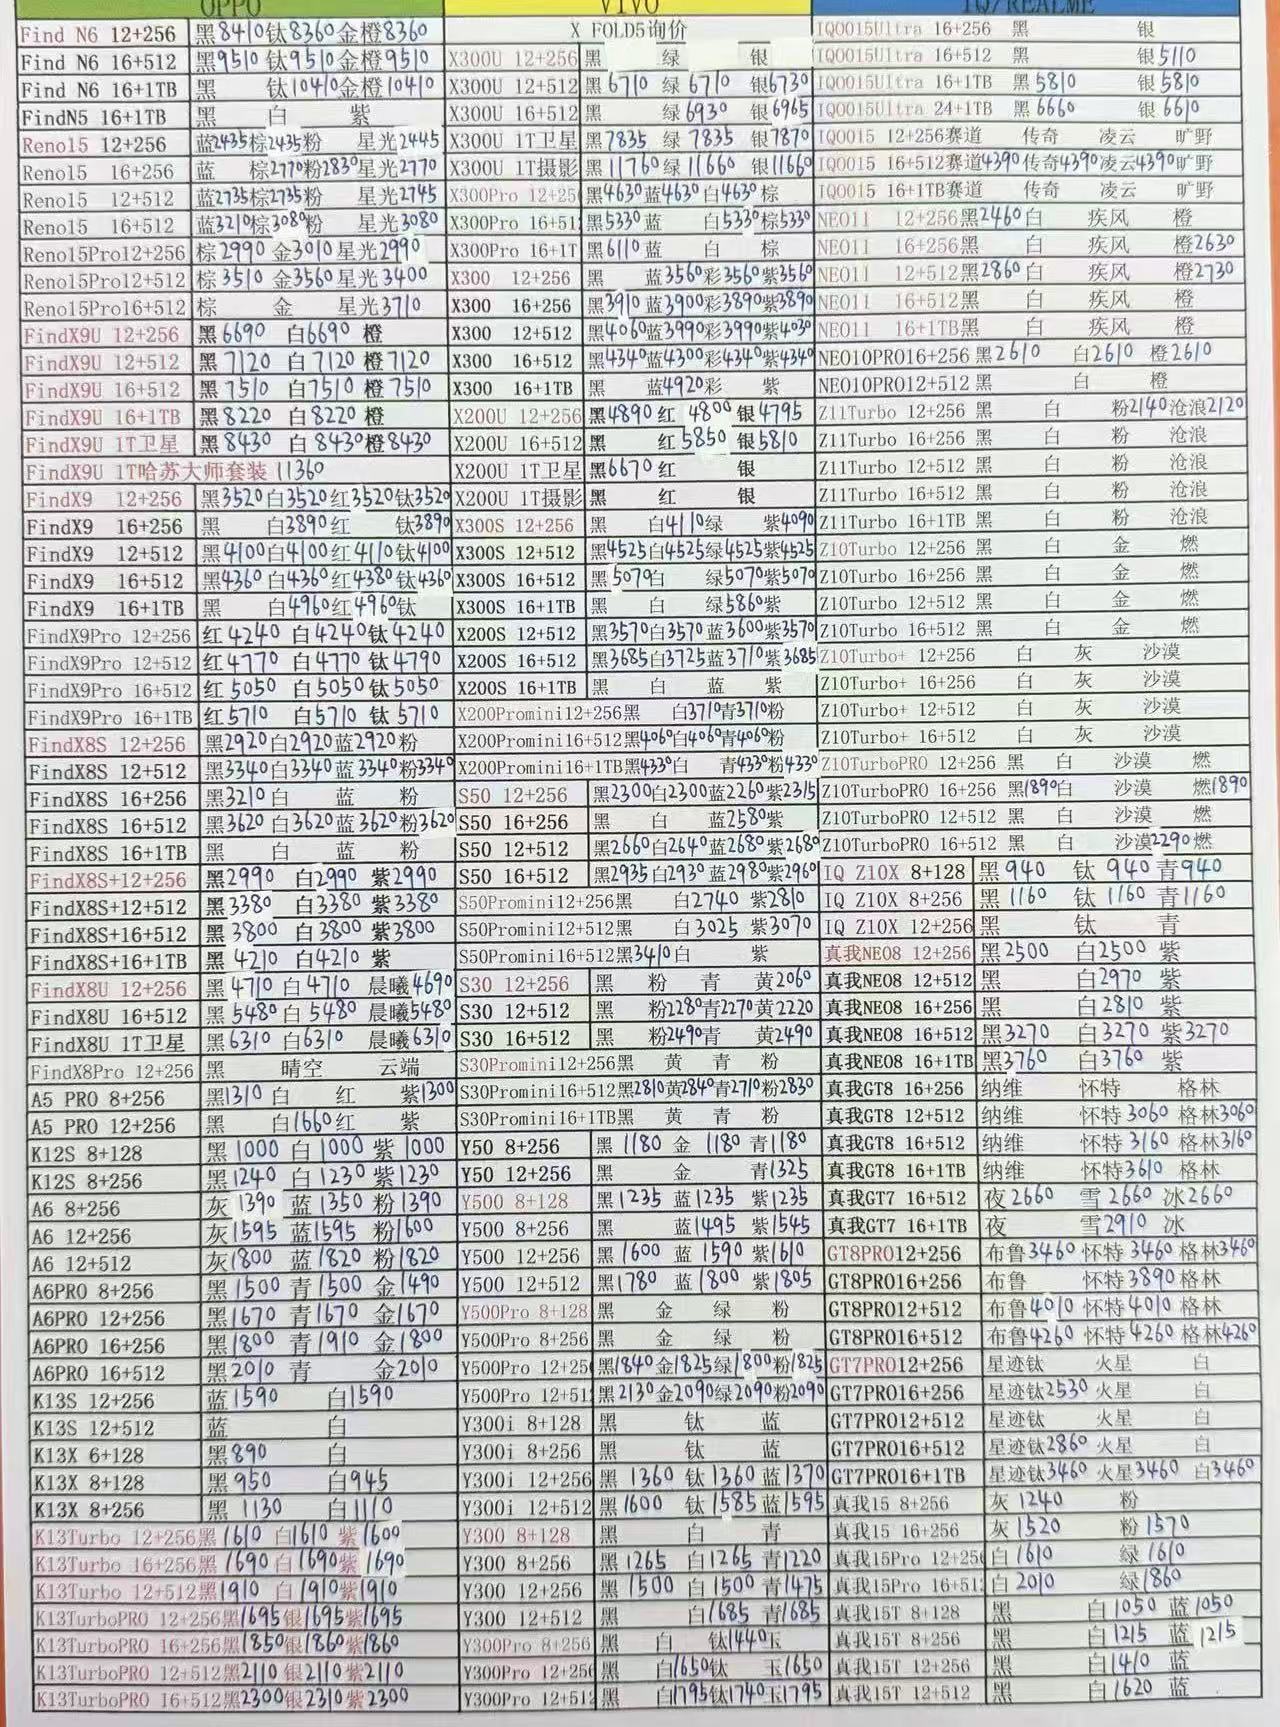 OPPO
Find N6 12+256 黑8410钛8360金橙8360
Find N6 16+512 黑9510钛9510金橙9510
Find N6 16+1TB 黑 钛10410金橙10410
FindN5 16+1TB 黑 白 紫
Reno15 12+256 蓝2435棕2435粉 星光2445
Reno15 16+256 蓝 棕2770粉2830星光2770
Reno15 12+512 蓝2735棕2735粉 星光2745
Reno15 16+512 蓝3210棕3080粉 星光3080
Reno15Pro12+256 棕2990 金3010星光2990
Reno15Pro12+512 棕3510 金3560星光3400
Reno15Pro16+512 棕 金 星光3710
FindX9U 12+256 黑6690 白6690 橙
FindX9U 12+512 黑7120 白7120 橙7120
FindX9U 16+512 黑7510 白7510 橙7510
FindX9U 16+1TB 黑8220 白8220 橙
FindX9U 1T卫星 黑8430 白8430橙8430
FindX9U 1T哈苏大师套装 11360
FindX9 12+256 黑3520白3520红3520钛3520
FindX9 16+256 黑 白3890红 钛3890
FindX9 12+512 黑4100白4100红4110钛4100
FindX9 16+512 黑4360白4360红4380钛4360
FindX9 16+1TB 黑 白4960红4960钛
FindX9Pro 12+256 红4240 白4240钛4240
FindX9Pro 12+512 红4770 白4770 钛4790
FindX9Pro 16+512 红5050 白5050钛5050
FindX9Pro 16+1TB 红5710 白5710 钛5710
FindX8S 12+256 黑2920白2920蓝2920粉
FindX8S 12+512 黑3340白3340蓝3340粉3340
FindX8S 16+256 黑3210白 蓝 粉
FindX8S 16+512 黑3620白3620蓝3620粉3620
FindX8S 16+1TB 黑 白 蓝 粉
FindX8S+12+256 黑2990 白2990 紫2990
FindX8S+12+512 黑3380 白3380 紫3380
FindX8S+16+512 黑3800 白3800 紫3800
FindX8S+16+1TB 黑4210 白4210 紫
FindX8U 12+256 黑4710 白4710 晨曦4690
FindX8U 16+512 黑5480白5480 晨曦5480
FindX8U 1T卫星 黑6310 白6310 晨曦6310
FindX8Pro 12+256 黑 晴空 云端
A5 PRO 8+256 黑1310白 红 紫1300
A5 PRO 12+256 黑 白1660红 紫
K12S 8+128 黑1000白1000紫1000
K12S 8+256 黑1240 白1230紫1230
A6 8+256 灰1390 蓝1350 粉1390
A6 12+256 灰1595 蓝1595 粉1600
A6 12+512 灰1800 蓝1820 粉1820
A6PRO 8+256 黑1500 青1500 金1490
A6PRO 12+256 黑1670 青1670 金1670
A6PRO 16+256 黑1800 青1910 金1800
A6PRO 16+512 黑2010 青 金2010
K13S 12+256 蓝1590 白1590
K13S 12+512 蓝 白
K13X 6+128 黑890 白
K13X 8+128 黑950 白945
K13X 8+256 黑 1130 白1110
K13Turbo 12+256黑1610 白1610 紫1600
K13Turbo 16+256黑1690白1690紫1690
K13Turbo 12+512黑1910 白1910紫1910
K13TurboPRO 12+256黑1695银1695紫1695
K13TurboPRO 16+256黑1850银1860紫1860
K13TurboPRO 12+512黑2110银2110紫2110
K13TurboPRO 16+512黑2300银2310紫2300
VIVO
X FOLD5询价
X300U 12+256 黑 绿 银
X300U 12+512 黑6710 绿6710 银6730
X300U 16+512 黑 绿6930 银6965
X300U 1T卫星 黑7835 绿7835 银7870
X300U 1T摄影 黑11760绿11660 银11660
X300Pro 12+256 黑4630蓝4630白4630棕
X300Pro 16+512 黑5330蓝 白5330棕5330
X300Pro 16+1T 黑6110蓝 白 棕
X300 12+256 黑 蓝3560彩3560紫3560
X300 16+256 黑3910蓝3900彩3890紫3890
X300 12+512 黑4060蓝3990彩3990紫4030
X300 16+512 黑4340蓝4300彩4340紫4340
X300 16+1TB 黑 蓝4920彩 紫
X200U 12+256 黑4890红 4800银4795
X200U 16+512 黑 红5850 银5810
X200U 1T卫星 黑6670红 银
X200U 1T摄影 黑 红 银
X300S 12+256 黑 白4110绿 紫4090
X300S 12+512 黑4525白4525绿4525紫4525
X300S 16+512 黑5070白 绿5070紫5070
X300S 16+1TB 黑 白 绿5860紫
X200S 12+512 黑3570白3570蓝3600紫3570
X200S 16+512 黑3685白3725蓝3710紫3685
X200S 16+1TB 黑 白 蓝 紫
X200Promini12+256黑 白3710青3710粉
X200Promini16+512黑4060白4060青4060粉
X200Promini16+1TB黑4330白 青4330粉4330
S50 12+256 黑2300白2300蓝2260紫2315
S50 16+256 黑 白 蓝2580紫
S50 12+512 黑2660白2640蓝2680紫2680
S50 16+512 黑2935白2930蓝2980紫2960
S50Promini12+256黑 白2740 紫2810
S50Promini12+512黑 白3025 紫3070
S50Promini16+512黑3410白 紫
S30 12+256 黑 粉 青 黄2060
S30 12+512 黑 粉2280青2270黄2220
S30 16+512 黑 粉2490青 黄2490
S30Promini12+256黑 黄 青 粉
S30Promini16+512黑2810黄2840青2710粉2830
S30Promini16+1TB黑 黄 青 粉
Y50 8+256 黑1180 金 1180青1180
Y50 12+256 黑 金 青1325
Y500 8+128 黑1235 蓝1235 紫1235
Y500 8+256 黑 蓝1495 紫1545
Y500 12+256 黑1600 蓝1590 紫1610
Y500 12+512 黑1780 蓝1800 紫1805
Y500Pro 8+128 黑 金 绿 粉
Y500Pro 8+256 黑 金 绿 粉
Y500Pro 12+256 黑1840金1825绿1800粉1825
Y500Pro 12+512 黑2130金2090绿2090粉2090
Y300i 8+128 黑 钛 蓝
Y300i 8+256 黑 钛 蓝
Y300i 12+256 黑1360 钛1360蓝1370
Y300i 12+512 黑1600 钛1585蓝1595
Y300 8+128 黑 白 青
Y300 8+256 黑1265 白1265青1220
Y300 12+256 黑1500 白1500青1475
Y300 12+512 黑 白1685 青1685
Y300Pro 8+256 黑 白 钛1440玉
Y300Pro 12+256 黑 白1650钛 玉1650
Y300Pro 12+512 黑 白1795钛1740玉1795
IQ/REALME
IQOO15Ultra 16+256 黑 银
IQOO15Ultra 16+512 黑 银5110
IQOO15Ultra 16+1TB 黑5810 银5810
IQOO15Ultra 24+1TB 黑6660 银6610
IQOO15 12+256赛道 传奇 凌云 旷野
IQOO15 16+512赛道4390传奇4390凌云4390旷野
IQOO15 16+1TB赛道 传奇 凌云 旷野
NEO11 12+256黑2460白 疾风 橙
NEO11 16+256黑 白 疾风 橙2630
NEO11 12+512黑2860白 疾风 橙2730
NEO11 16+512黑 白 疾风 橙
NEO11 16+1TB黑 白 疾风 橙
NEO10PRO16+256 黑2610 白2610 橙2610
NEO10PRO12+512 黑 白 橙
Z11Turbo 12+256 黑 白 粉2140沧浪2120
Z11Turbo 16+256 黑 白 粉 沧浪
Z11Turbo 12+512 黑 白 粉 沧浪
Z11Turbo 16+512 黑 白 粉 沧浪
Z11Turbo 16+1TB 黑 白 粉 沧浪
Z10Turbo 12+256 黑 白 金 燃
Z10Turbo 16+256 黑 白 金 燃
Z10Turbo 12+512 黑 白 金 燃
Z10Turbo 16+512 黑 白 金 燃
Z10Turbo+ 12+256 白 灰 沙漠
Z10Turbo+ 16+256 白 灰 沙漠
Z10Turbo+ 12+512 白 灰 沙漠
Z10Turbo+ 16+512 白 灰 沙漠
Z10TurboPRO 12+256 黑 白 沙漠 燃
Z10TurboPRO 16+256 黑1890白 沙漠 燃1890
Z10TurboPRO 12+512 黑 白 沙漠 燃
Z10TurboPRO 16+512 黑 白 沙漠2290燃
IQ Z10X 8+128 黑940 钛940青940
IQ Z10X 8+256 黑1160 钛1160青1160
IQ Z10X 12+256 黑 钛 青
真我NEO8 12+256 黑2500 白2500 紫
真我NEO8 12+512 黑 白2970 紫
真我NEO8 16+256 黑 白2810 紫
真我NEO8 16+512 黑3270 白3270 紫3270
真我NEO8 16+1TB 黑3760 白3760 紫
真我GT8 16+256 纳维 怀特 格林
真我GT8 12+512 纳维 怀特3060格林3060
真我GT8 16+512 纳维 怀特3160格林3160
真我GT8 16+1TB 纳维 怀特3610 格林
真我GT7 16+512 夜2660 雪2660冰2660
真我GT7 16+1TB 夜 雪2910 冰
GT8PRO12+256 布鲁3460怀特3460格林3460
GT8PRO16+256 布鲁 怀特3890格林
GT8PRO12+512 布鲁4010怀特4010格林
GT8PRO16+512 布鲁4260怀特4260格林4260
GT7PRO12+256 星迹钛 火星 白
GT7PRO16+256 星迹钛2530火星 白
GT7PRO12+512 星迹钛 火星 白
GT7PRO16+512 星迹钛2860火星 白
GT7PRO16+1TB 星迹钛3460火星3460白3460
真我15 8+256 灰1240 粉
真我15 16+256 灰1520 粉1570
真我15Pro 12+256 白1610 绿1610
真我15Pro 16+512 白2010 绿1860
真我15T 8+128 黑 白1050 蓝1050
真我15T 8+256 黑 白1215 蓝1215
真我15T 12+256 黑 白1410 蓝
真我15T 12+512 黑 白1620 蓝